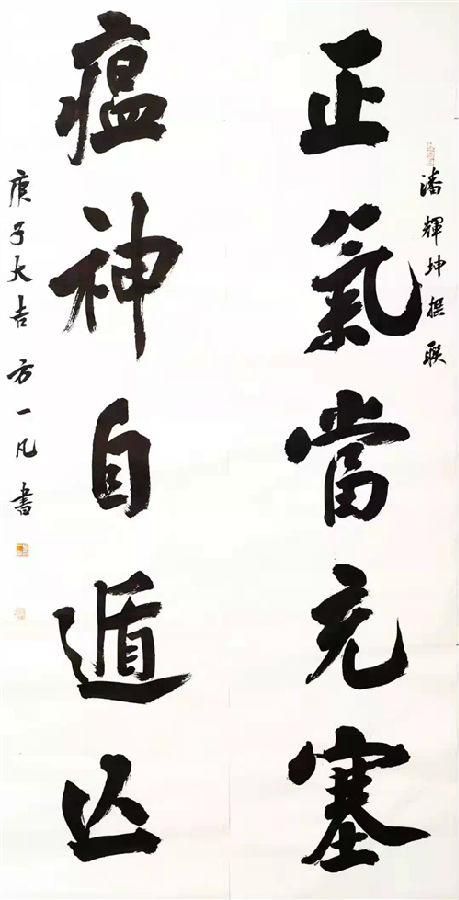 潘輝坤撰联
正氣當充塞
瘟神自遁亡
庚子大吉 方一凡 書